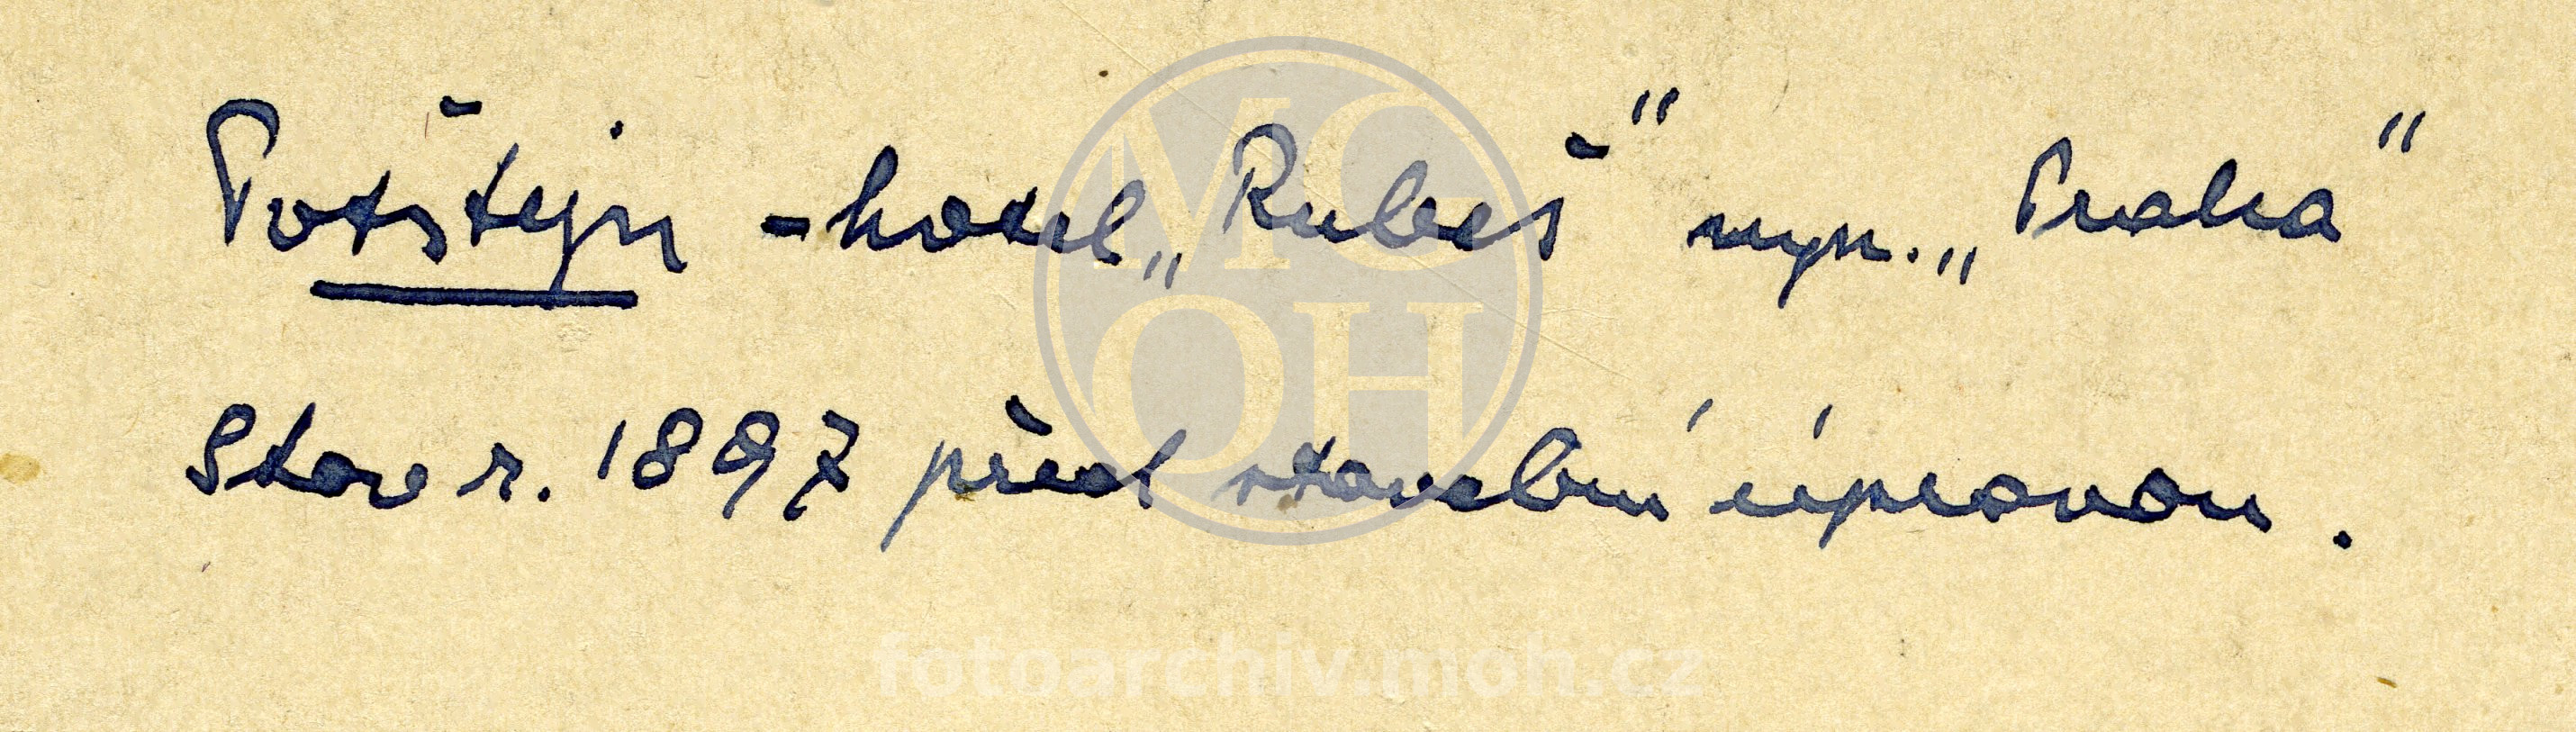 Potštejn - hotel „Rubeš“ nyn. „Praha“
Stav r. 1897 před stavební úpravou.
MG
OH
fotoarchiv.moh.cz